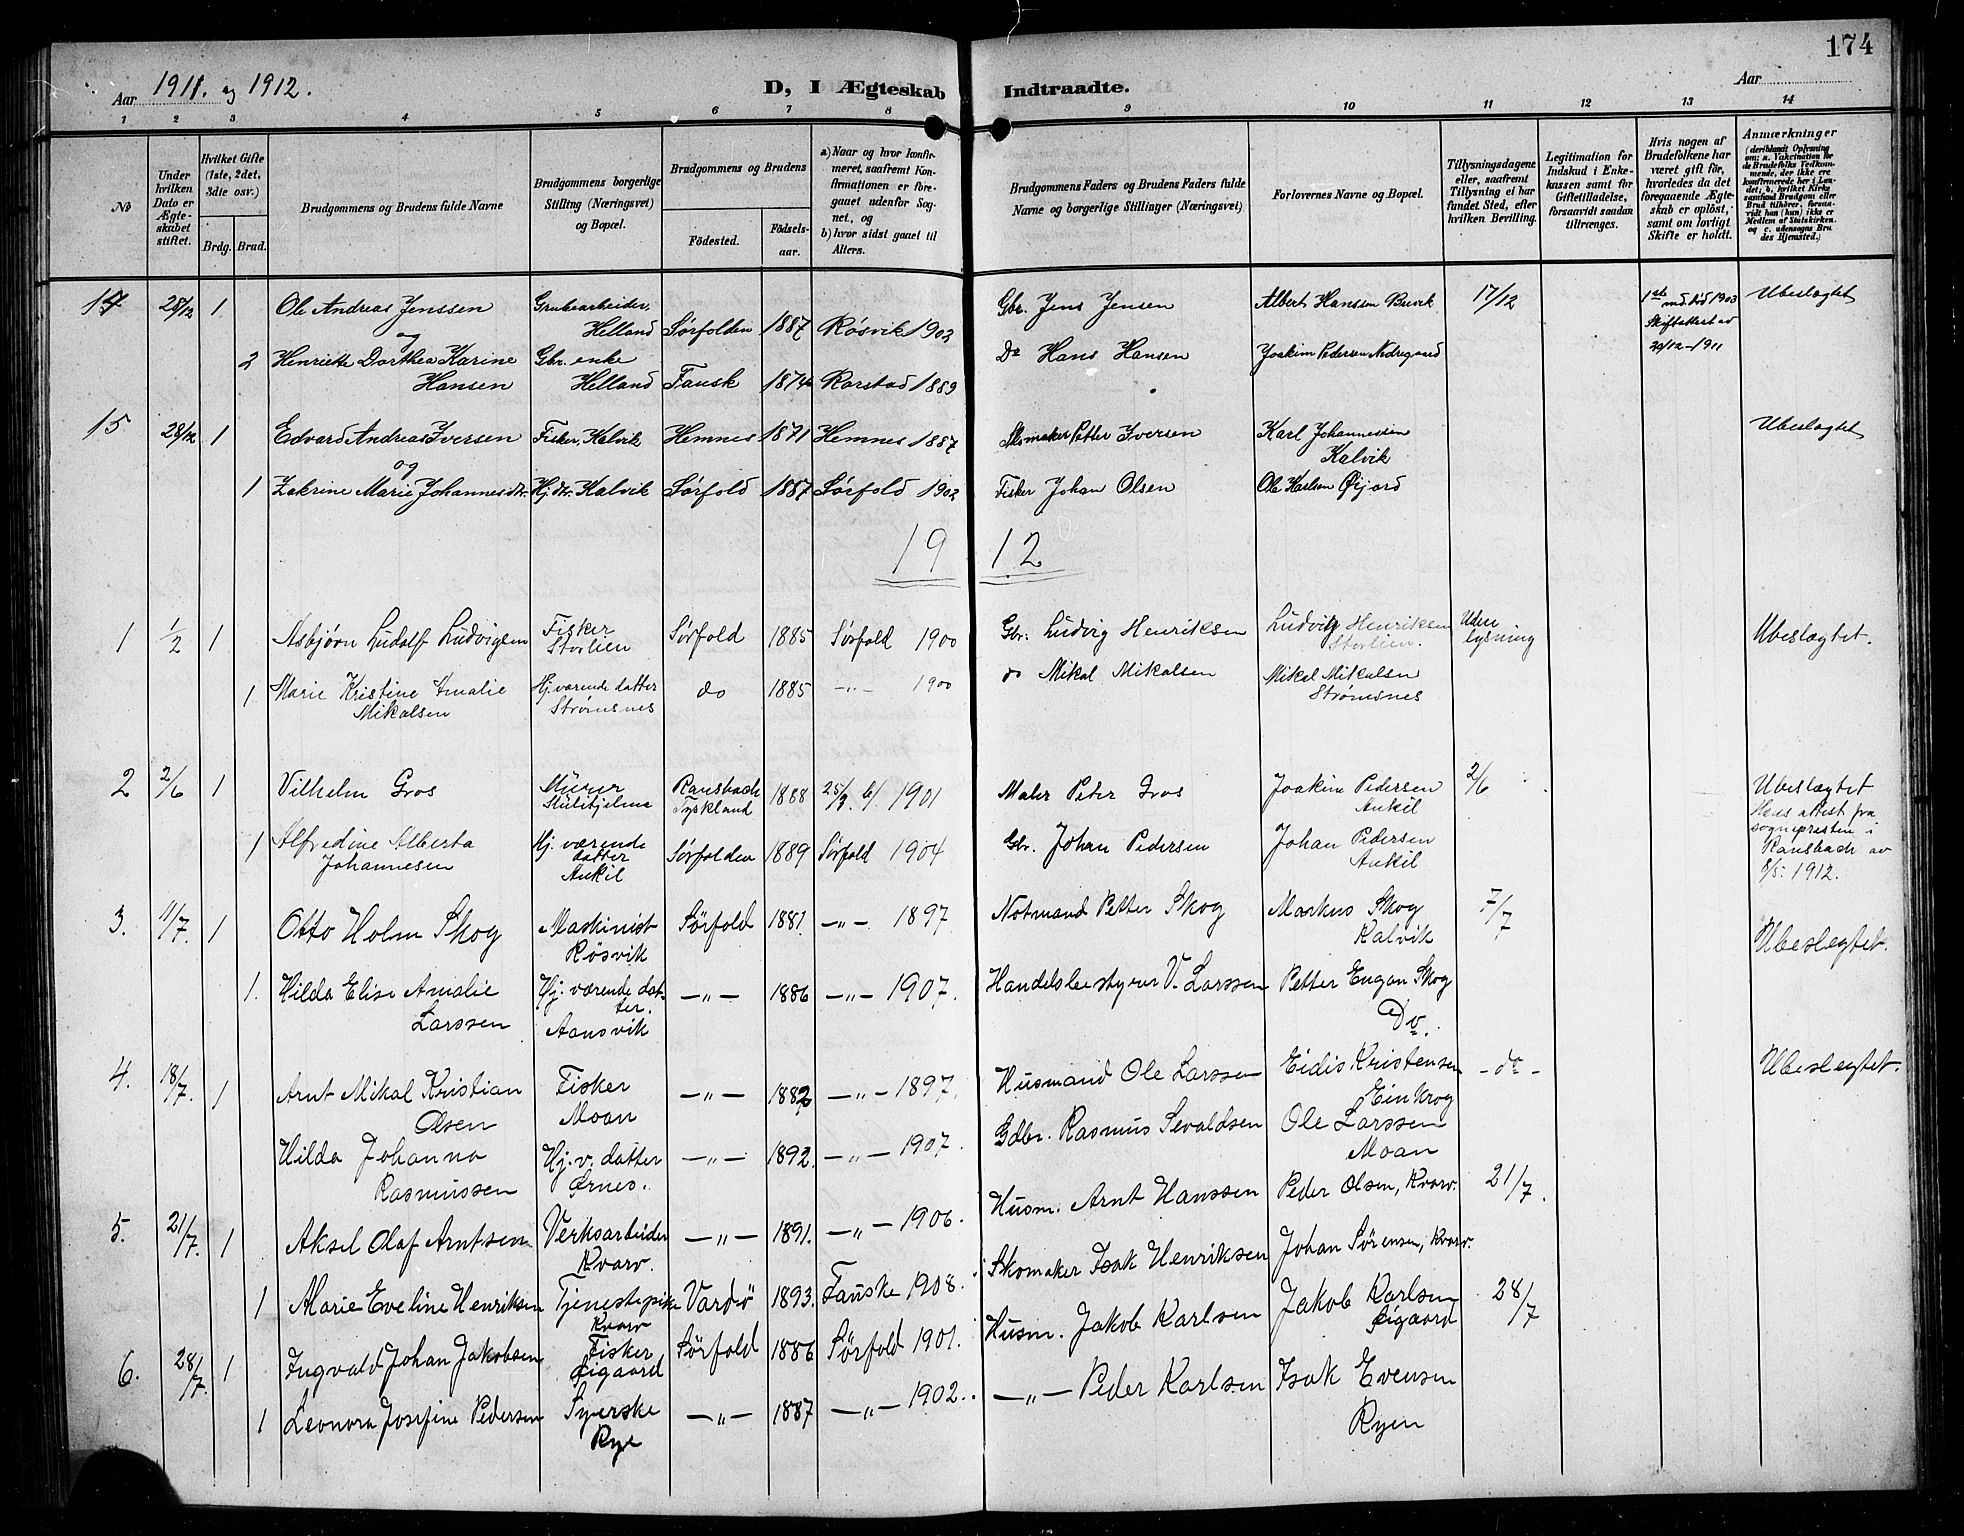 174
Aar 1911. og 1912.
D, I Ægteskab Indtraadte.
Aar
1 2 3 4 5 6 7 8 9 10 11 12 13 14
No
Under hvilken Dato er Ægteskabet stiftet.
Hvilket Gifte (1ste, 2det, 3die osv.)
Brdg. Brud.
Brudgommens og Brudens fulde Navne
Brudgommens borgerlige Stilling (Næringsvei) og Bopæl.
Brudgommens og Brudens
Fødested. Fødselsaar.
a) Naar og hvor konfirmeret, saafremt Konfirmationen er foregaaet udenfor Sognet, og
b) hvor sidst gaaet til Alters.
Brudgommens Faders og Brudens Faders fulde Navne og borgerlige Stillinger (Næringsvei)
Forlovernes Navne og Bopæl.
Tillysningsdagene eller, saafremt Tillysning ei har fundet Sted, efter hvilken Bevilling.
Legitimation for Indskud i Enkekassen samt for Giftetilladelse, forsaavidt saadan tiltrænges.
Hvis nogen af Brudefolkene har været gift før, hvorledes da det foregaaende Ægteskab er opløst, samt om lovligt Skifte er holdt.
Anmærkninger (deriblandt Oplysning om: a. Vakcination for de Brudefolks Vedkommende, der ikke ere konfirmerede her i Landet; b. hvilket Kirkesamfund Brudgom eller Brud tilhører, forsaavidt han (hun) ikke er Medlem af Statskirken. og c. udensogns Brudes Hjemsted.)
14 28/12 1 Ole Andreas Jenssen Grubearbeider, Helland Sørfolden 1887 Røsvik 1902 Gbr. Jens Jensen Albert Hanssen Buvik 17/12 1ste md. død 1903 Ubeslægtet
og
Skiftattest av 20/12-1911
2 Henriette Dorthea Karine Hansen Gbr. enke Helland Fausk 1874 Rørstad 1889 Do Hans Hansen Joakim Pedersen Nedregaard
15 28/12 1 Edvard Andreas Iversen Fisker, Kalvik Hemnes 1871 Hemnes 1887 Skomaker Petter Iversen Karl Johannessen Kalvik Ubeslægtet
og
1 Zakrine Marie Johannesdtr. Hj. dtr. Kalvik Sørfold 1887 Sørfold 1902 Fisker Johan Olsen Ole Karlsen Øijord
19 12
1 1/2 1 Asbjørn Ludolf Ludvigsen Fisker Storlien Sørfold 1885 Sørfold 1900 Gbr: Ludvig Henriksen Ludvig Henriksen Storlien. Uden lysning Ubeslægtet.
1 Marie Kristine Amalie Mikalsen Hj. værende datter Strømsnes do 1885 -"- 1900 do Mikal Mikalsen Mikal Mikalsen Strømsnes
2 2/6 1 Vilhelm Gros Murer Sulitjelma Ransbach Tyskland 1888 1901 Maler Peter Gros Joakim Pedersen Aukil 2/6 Ubeslægtet
Hans attest fra sognepresten i Ransbach av 8/5. 1912.
1 Alfredine Alberta Johannesen Hj. værende datter Aukil Sørfolden 1889 Sørfold 1904 Gbr. Johan Pedersen Johan Pedersen Aukil
3. 11/7. 1 Otto Holm Skog Maskinist Røsvik Sørfold 1881. -"- 1897 Notmand Petter Skog Markus Skog Kalvik 7/7 Ubeslegtet.
1. Hilda Elise Amalie Larssen Hj. værende datter. Aansvik -"- 1886 -"- 1907. Handelsbestyrer V. Larssen Petter Engan Skog Do.
4. 18/7. 1 Arnt Mikal Kristian Olsen Fisker Moan -"- 1882 -"- 1897. Husmand Ole Larssen Eidis Kristensen Einkrog - do - Ubeslegtet.
Hilda Johanna Rasmussen Hj. v. datter Ørnes. -"- 1892. -"- 1907. Gdbr. Rasmus Sevaldsen Ole Larssen Moan
5. 21/7. 1 Aksel Olaf Arntsen Verksarbeider Kvarv. -"- 1891. -"- 1906. Husm. Arnt Hanssen Peder Olsen, Kvarv. 21/7.
1 Marie Eveline Henriksen Tjenestepike Kvarv Vardø 1893. Fauske 1908. Skomaker Isak Henriksen Johan Sørensen, Kvarv.
6. 28/7. 1 Ingvald Johan Jakobsen Fisker Øigaard Sørfold 1886 Sørfold 1901. Husm. Jakob Karlsen Jakob Karlsen Øigaard 28/7
1 Leonora Josefine Pedersen Syerske Rye -"- 1887 -"- 1902. -"- Peder Karlsen Isak Evensen Ryen